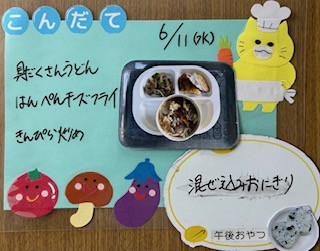 こんだて
6/11(水)
具だくさんうどん
はんぺんチーズフライ
きんぴら炒め
混ぜ込みおにぎり
午後おやつ